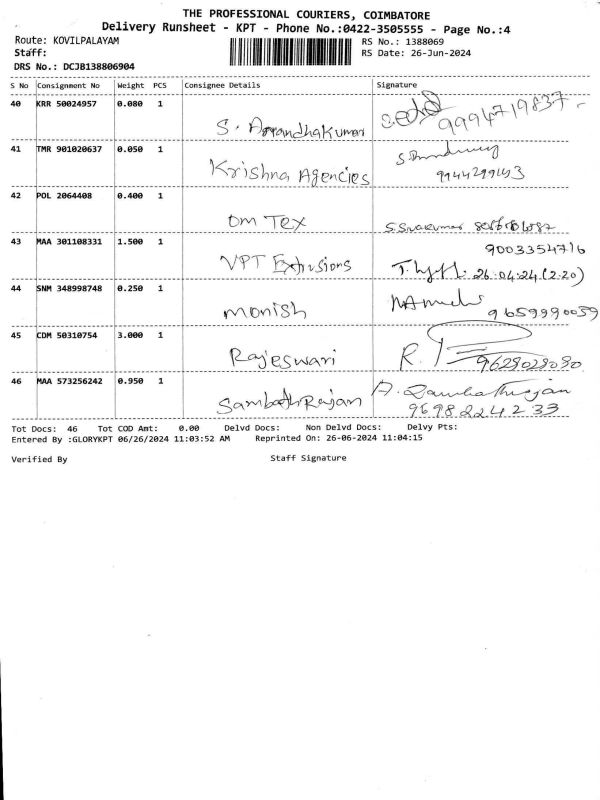 THE PROFESSIONAL COURIERS, COIMBATORE
Delivery Runsheet - KPT - Phone No.:0422-3505555 - Page No.:4
Route: KOVILPALAYAM RS No.: 1388069
Staff: RS Date: 26-Jun-2024
DRS No.: DCJB138806904
S No Consignment No Weight PCS Consignee Details Signature
40 KRR 50024957 0.080 1
S. Anandhakumar 9994719837
41 TMR 901020637 0.050 1
Krishna Agencies
42 POL 2064408 0.400 1
Om Tex S. Sivakumar
43 MAA 301108331 1.500 1 9003354716
VPT Extrusions 26.04.24 (2.20)
44 SNM 348998748 0.250 1
Monish 9659990059
45 CDM 50310754 3.000 1
Rajeswari R. 9628028080
46 MAA 573256242 0.950 1
SambathRajan
9698224233
Tot Docs: 46 Tot COD Amt: 0.00 Delvd Docs: Non Delvd Docs: Delvy Pts:
Entered By :GLORYKPT 06/26/2024 11:03:52 AM Reprinted On: 26-06-2024 11:04:15
Verified By Staff Signature